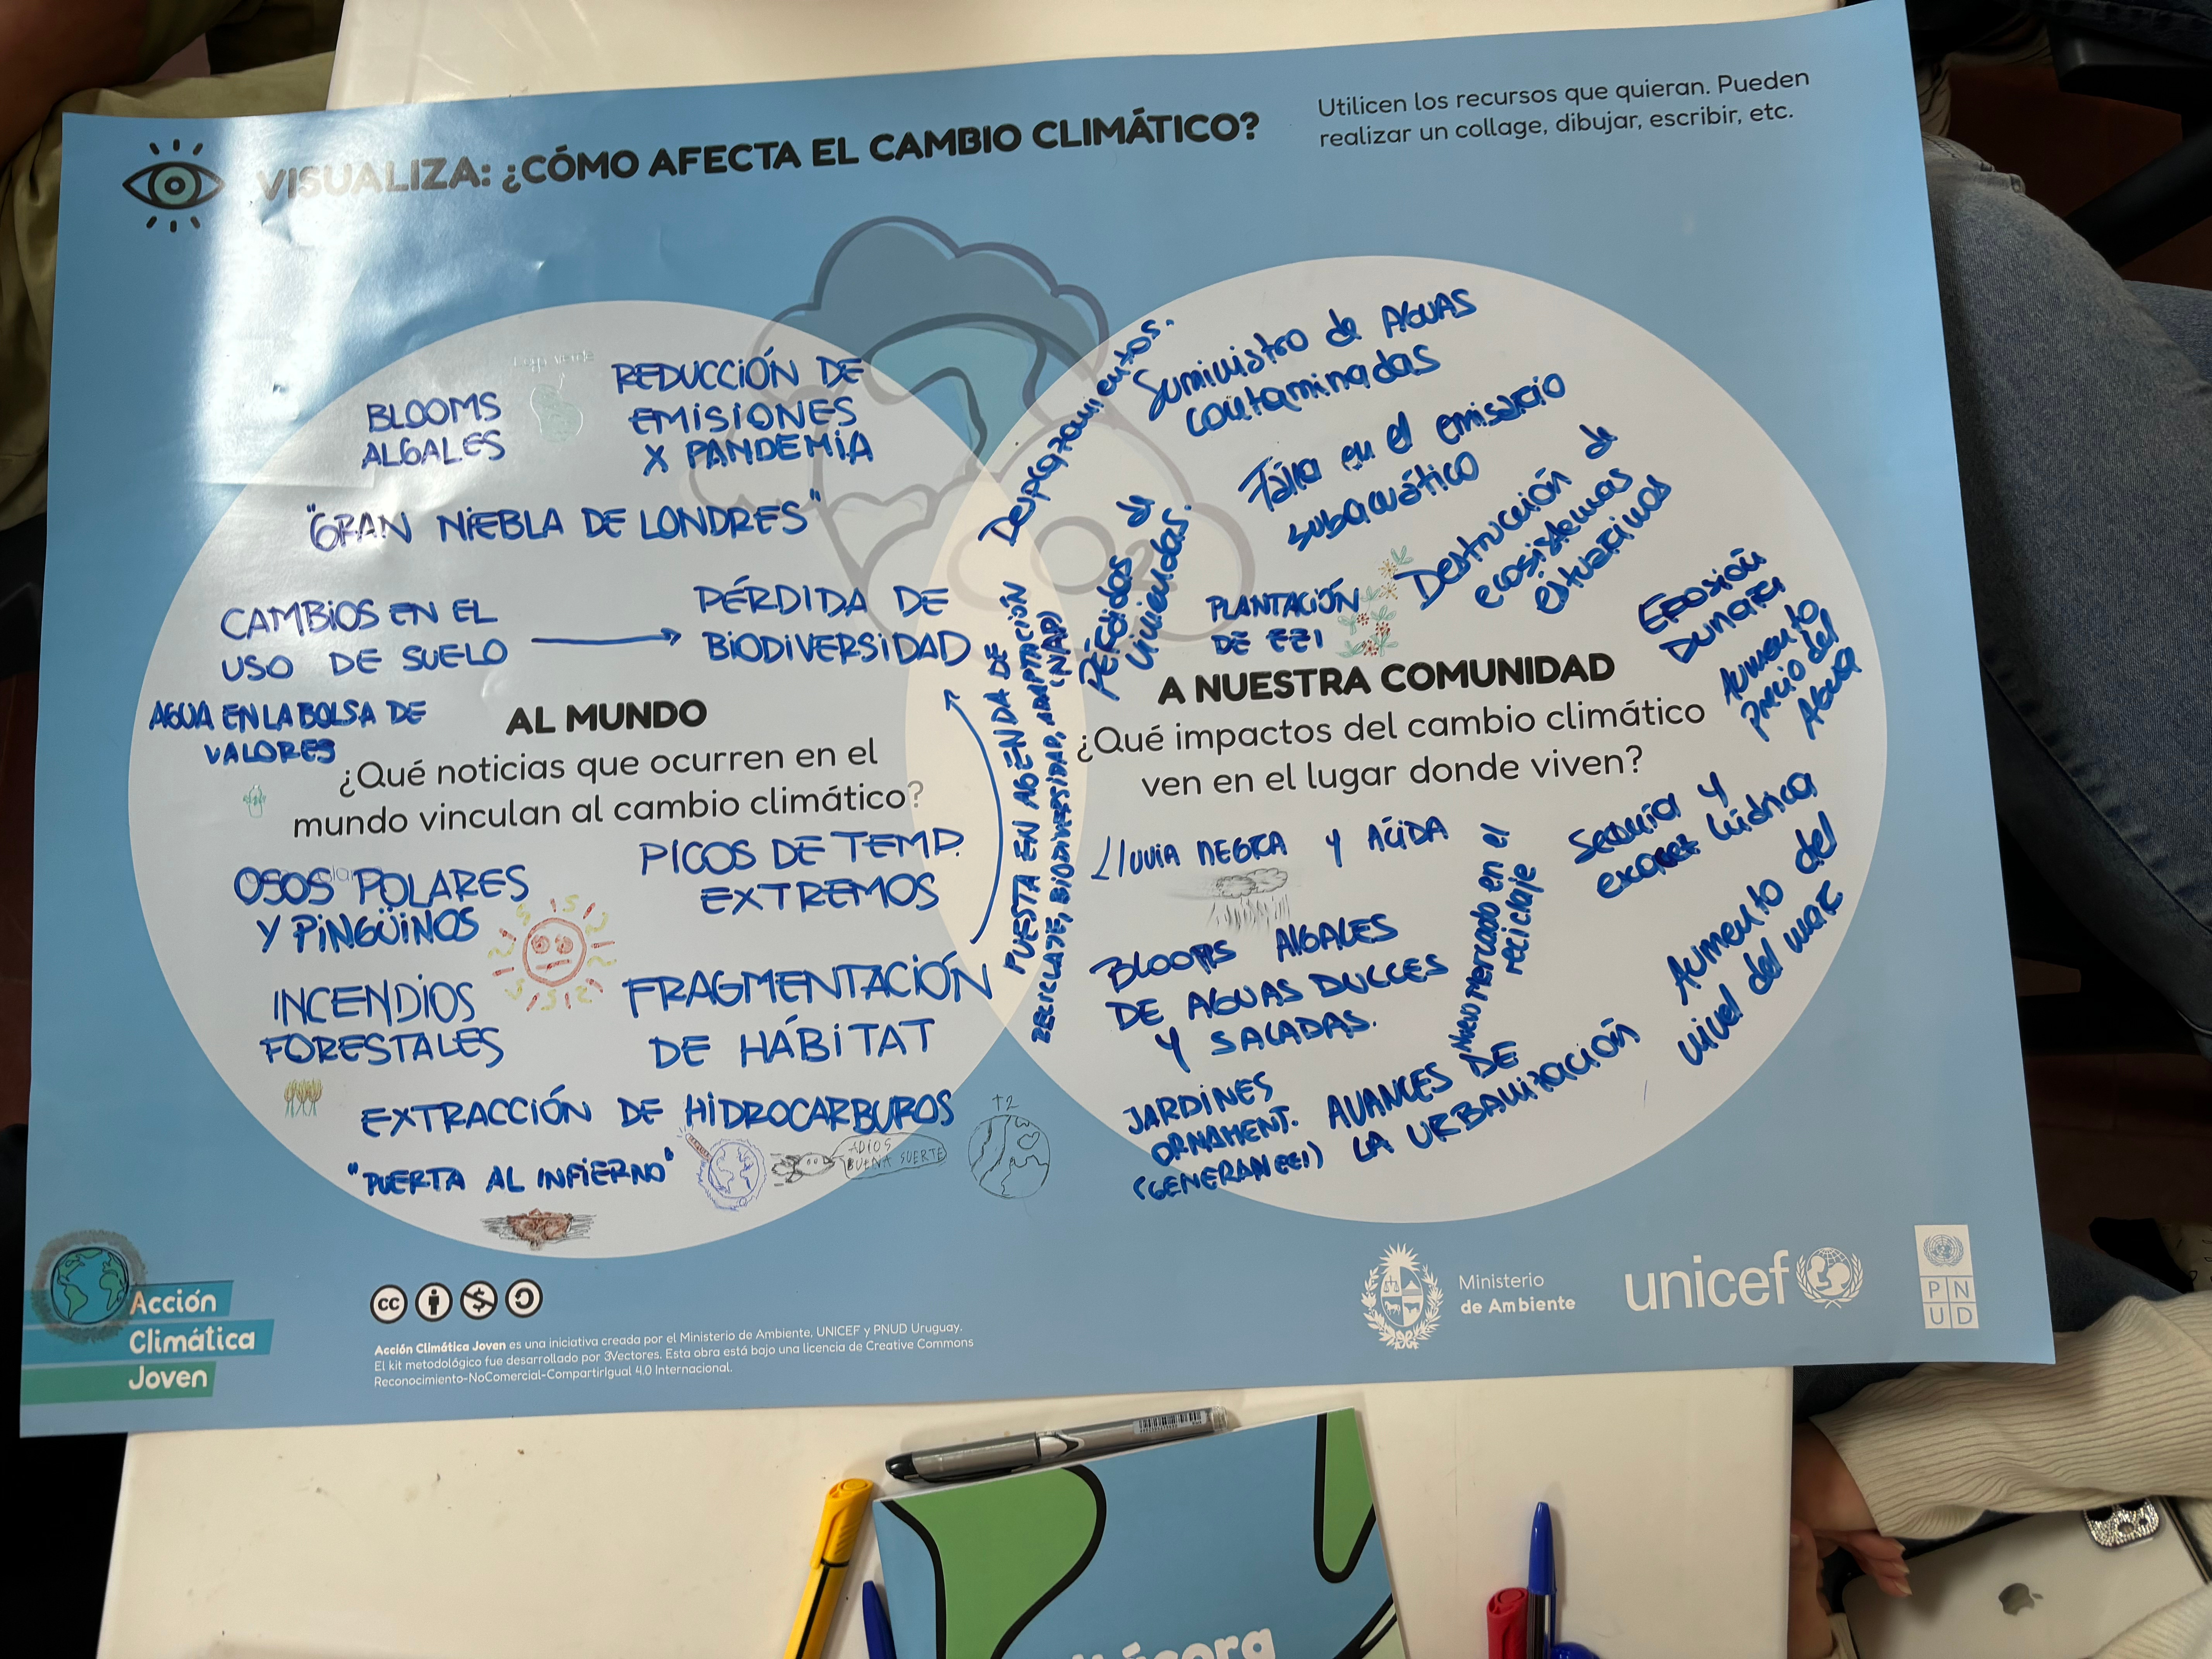 VISUALIZA: ¿CÓMO AFECTA EL CAMBIO CLIMÁTICO?
Utilicen los recursos que quieran. Pueden
realizar un collage, dibujar, escribir, etc.
BLOOMS
ALGALES
REDUCCIÓN DE
EMISIONES
X PANDEMIA
"GRAN NIEBLA DE LONDRES"
CAMBIOS EN EL
USO DE SUELO
PÉRDIDA DE
BIODIVERSIDAD
AGUA EN LA BOLSA DE
VALORES
AL MUNDO
¿Qué noticias que ocurren en el
mundo vinculan al cambio climático?
OSOS POLARES
Y PINGÜINOS
PICOS DE TEMP.
EXTREMOS
INCENDIOS
FORESTALES
FRAGMENTACIÓN
DE HÁBITAT
EXTRACCIÓN DE HIDROCARBUROS
"PUERTA AL INFIERNO"
ADIOS
BUENA SUERTE
+2
CO2
Pérdidas de
viviendas.
PUESTA EN AGENDA DE
RECICLAJE, BIODIVERSIDAD, ADAPTACIÓN
(NAP)
Suministro de AGUAS
contaminadas
Falla en el emisario
subacuático
Destrucción de
ecosistemas
estuarinos
PLANTACIÓN
DE EEI
EROSIÓN
DUNAR
Aumento
Precio del
AGUA
A NUESTRA COMUNIDAD
¿Qué impactos del cambio climático
ven en el lugar donde viven?
Lluvia NEGRA Y ÁCIDA
Sequía y
hídrica
BLOOMS ALGALES
DE AGUAS DULCES
Y SALADAS.
Nuevo Mercado en el
reciclaje
Aumento del
nivel del mar
JARDINES
ORNAMENT.
(GENERAN EEI)
AVANCES DE
LA URBANIZACIÓN
Acción
Climática
Joven
cc
Acción Climática Joven es una iniciativa creada por el Ministerio de Ambiente, UNICEF y PNUD Uruguay.
El kit metodológico fue desarrollado por 3Vectores. Esta obra está bajo una licencia de Creative Commons
Reconocimiento-NoComercial-CompartirIgual 4.0 Internacional.
Ministerio
de Ambiente
unicef
PN
UD